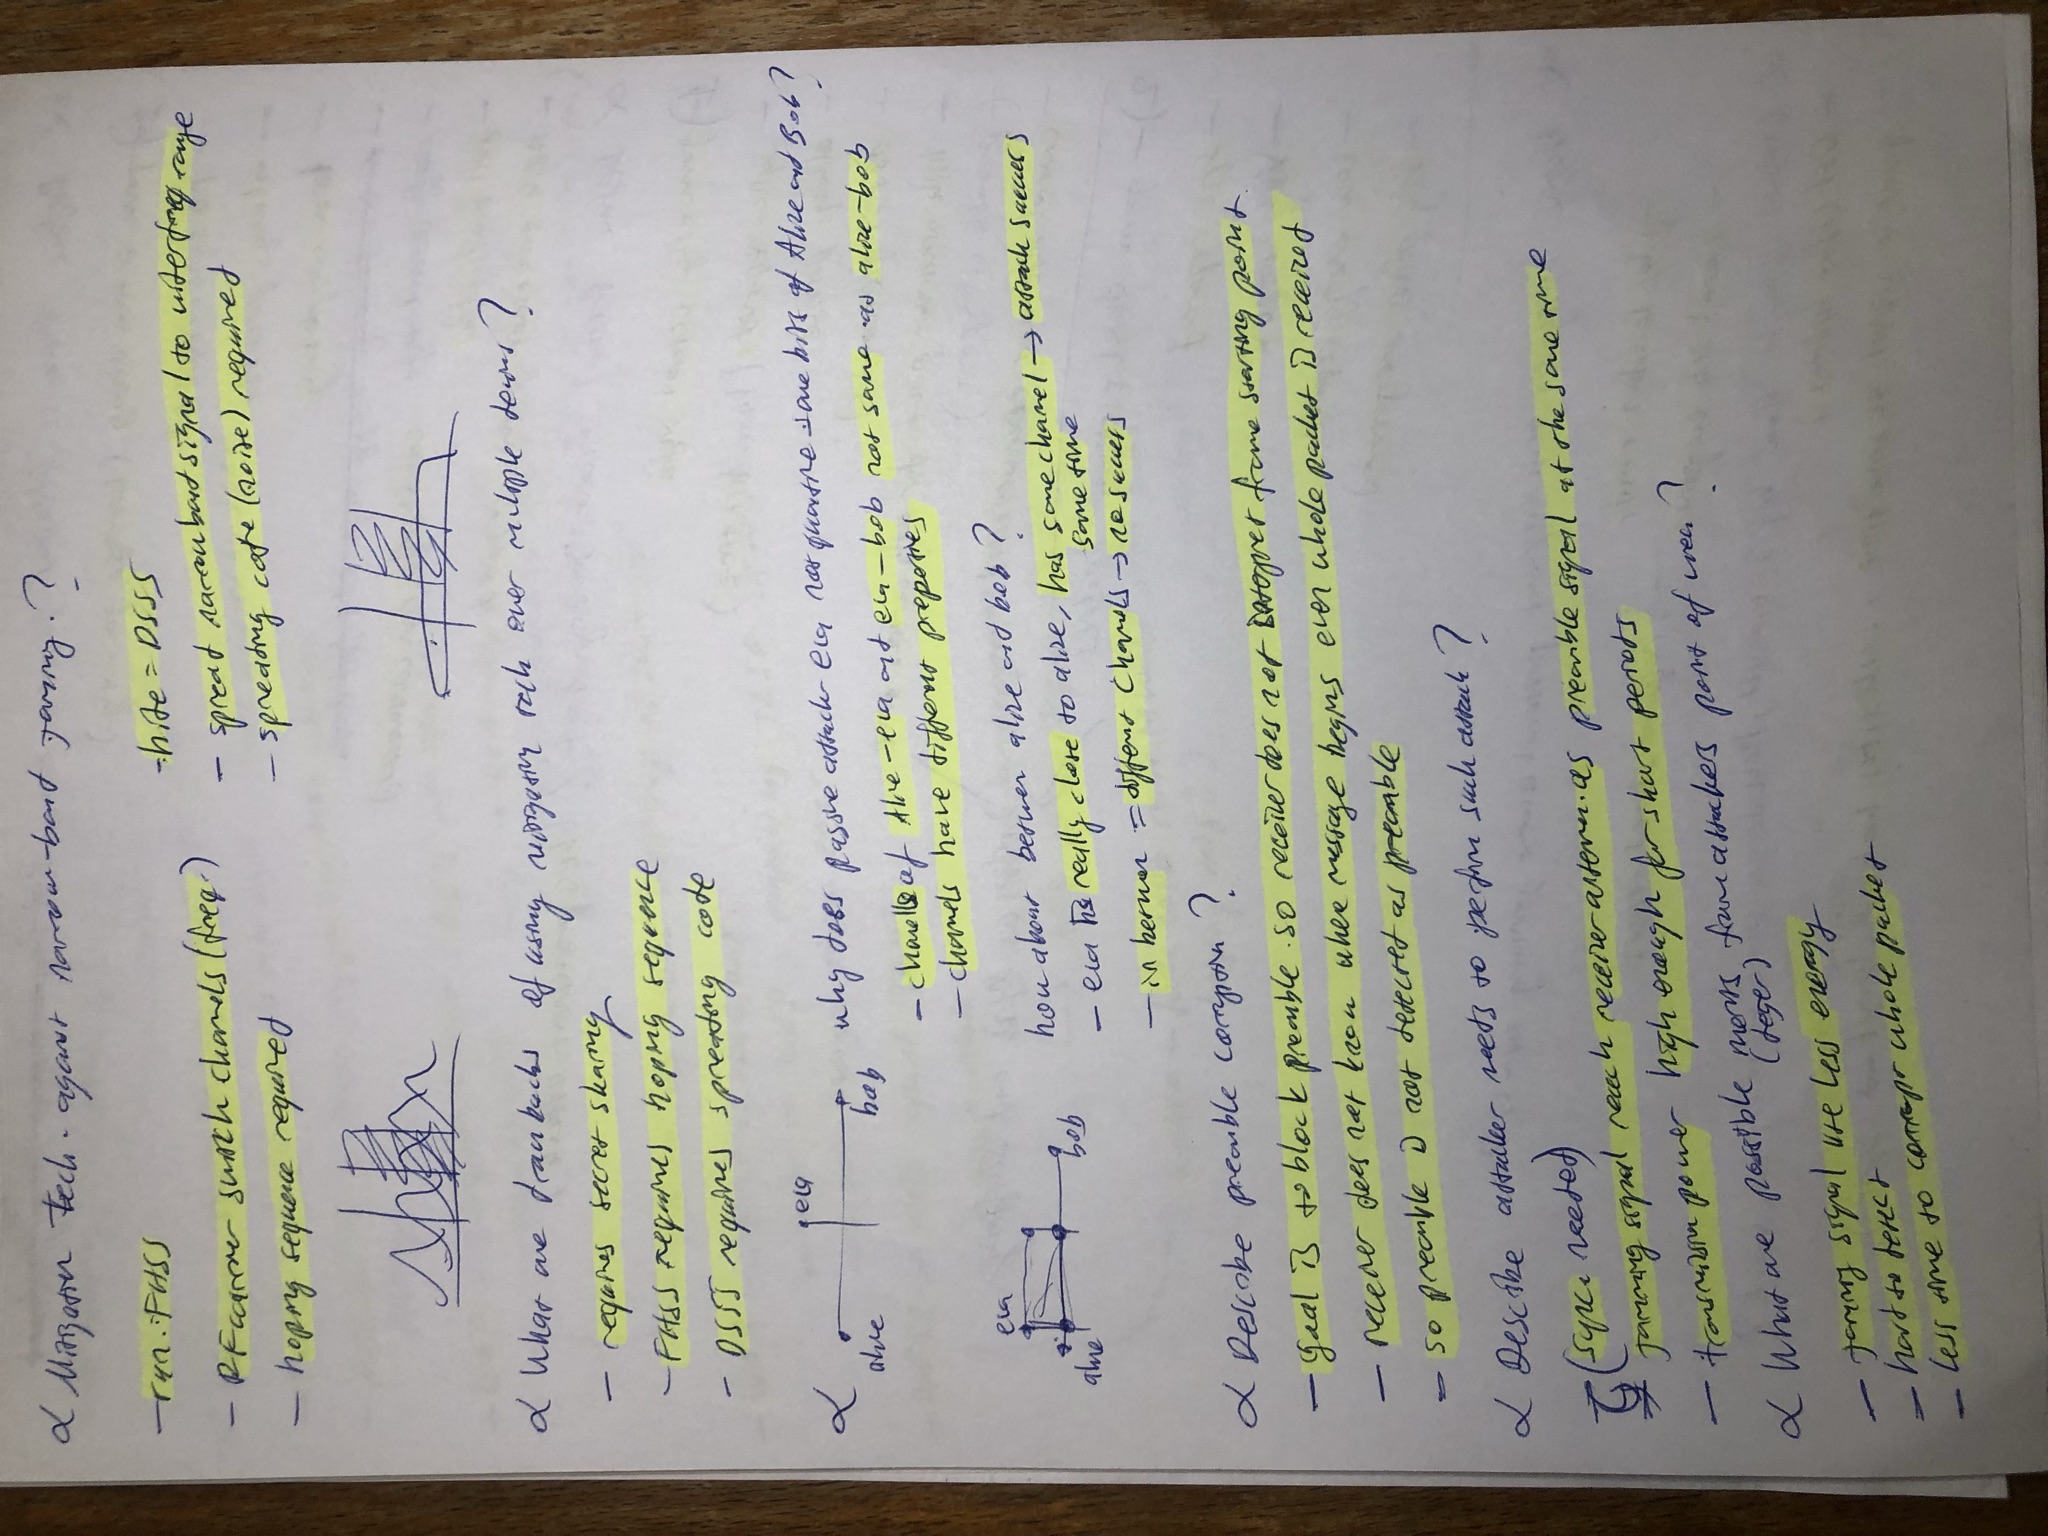 α Mitigation tech. against narrow-band jamming?
- run: FHSS
- RF carrier switch channels (freq.)
- hoping sequence required
- hide = DSSS
- spread narrow band signal to interfering range
- spreading code (noise) required
α What are drawbacks of using mitigation tech over multiple devices?
- requires secret sharing
- FHSS requires hoping sequence
- DSSS requires spreading code
α
alice
eva
bob
why does passive attacker eva not quantise same bits of Alice and Bob?
- channels of Alice-eva and eva-bob not same as alice-bob
- channels have different properties
eva
alice
bob
how about between alice and bob?
- eva is really close to alice, has same channel → attack success
same time
- in between = different channels → no success
α Describe preamble corruption?
- goal is to block preamble. so receiver does not frame starting point
- receiver does not know where message begins even whole packet is received
= so preamble is not detected as preamble
α Describe attacker needs to perform such attack?
(sync. needed)
jamming signal reach receiver antenna as preamble signal at the same time
- transmission power high enough for short periods
α What are possible merits from attackers point of view?
(deger)
- jamming signal use less energy
= hard to detect
- less time to corrupt whole packet